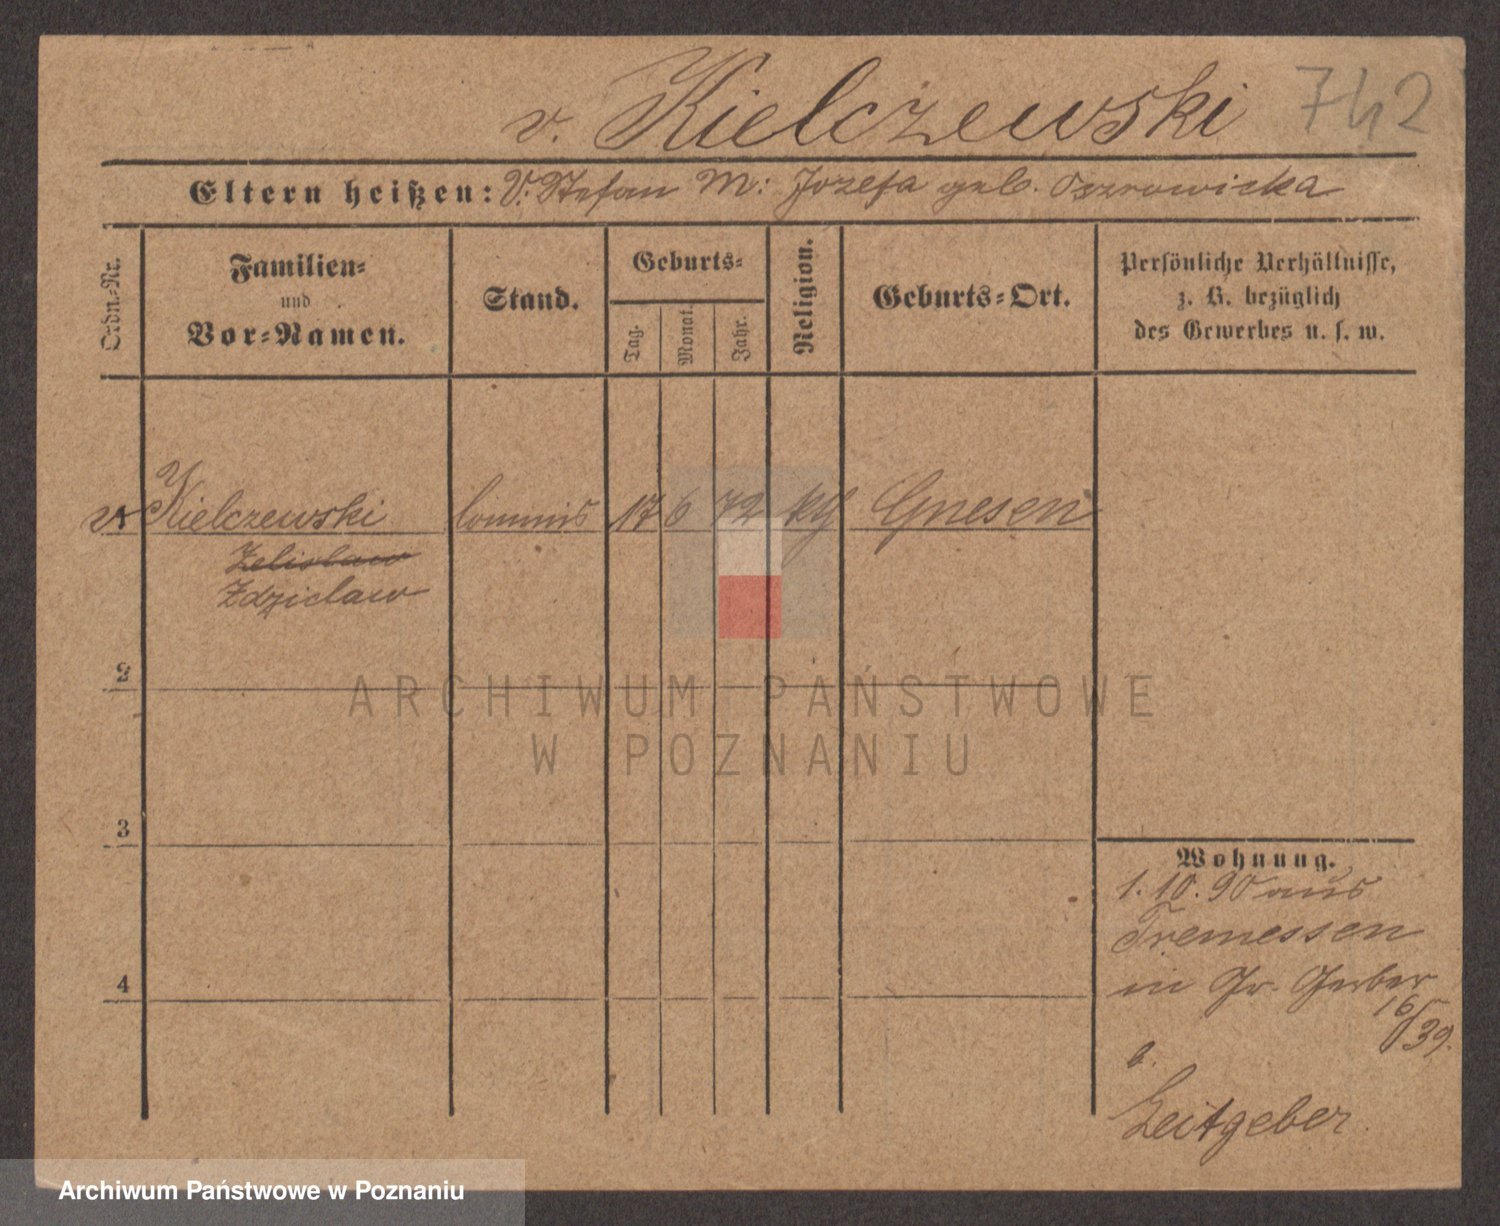 v. Kielczewski 742
Eltern heißen: V. Stefan M: Jozefa geb.
Ordn.-Nr.
Familien-
und
Vor-Namen.
Stand.
Geburts-
Tag.
Monat.
Jahr.
Religion.
Geburts-Ort.
Persönliche Verhältnisse,
z. B. bezüglich
des Gewerbes u. s. w.
v. Kielczewski Commis 17 6 72 kth Gnesen
1
Zelislaw
Zdzislaw
2
3
4
Wohnung.
1. 10. 90 aus
Tremessen
in Gr. Gerber
16/39.
b.
Zeitgeber
ARCHIWUM PAŃSTWOWE
W POZNANIU
Archiwum Państwowe w Poznaniu